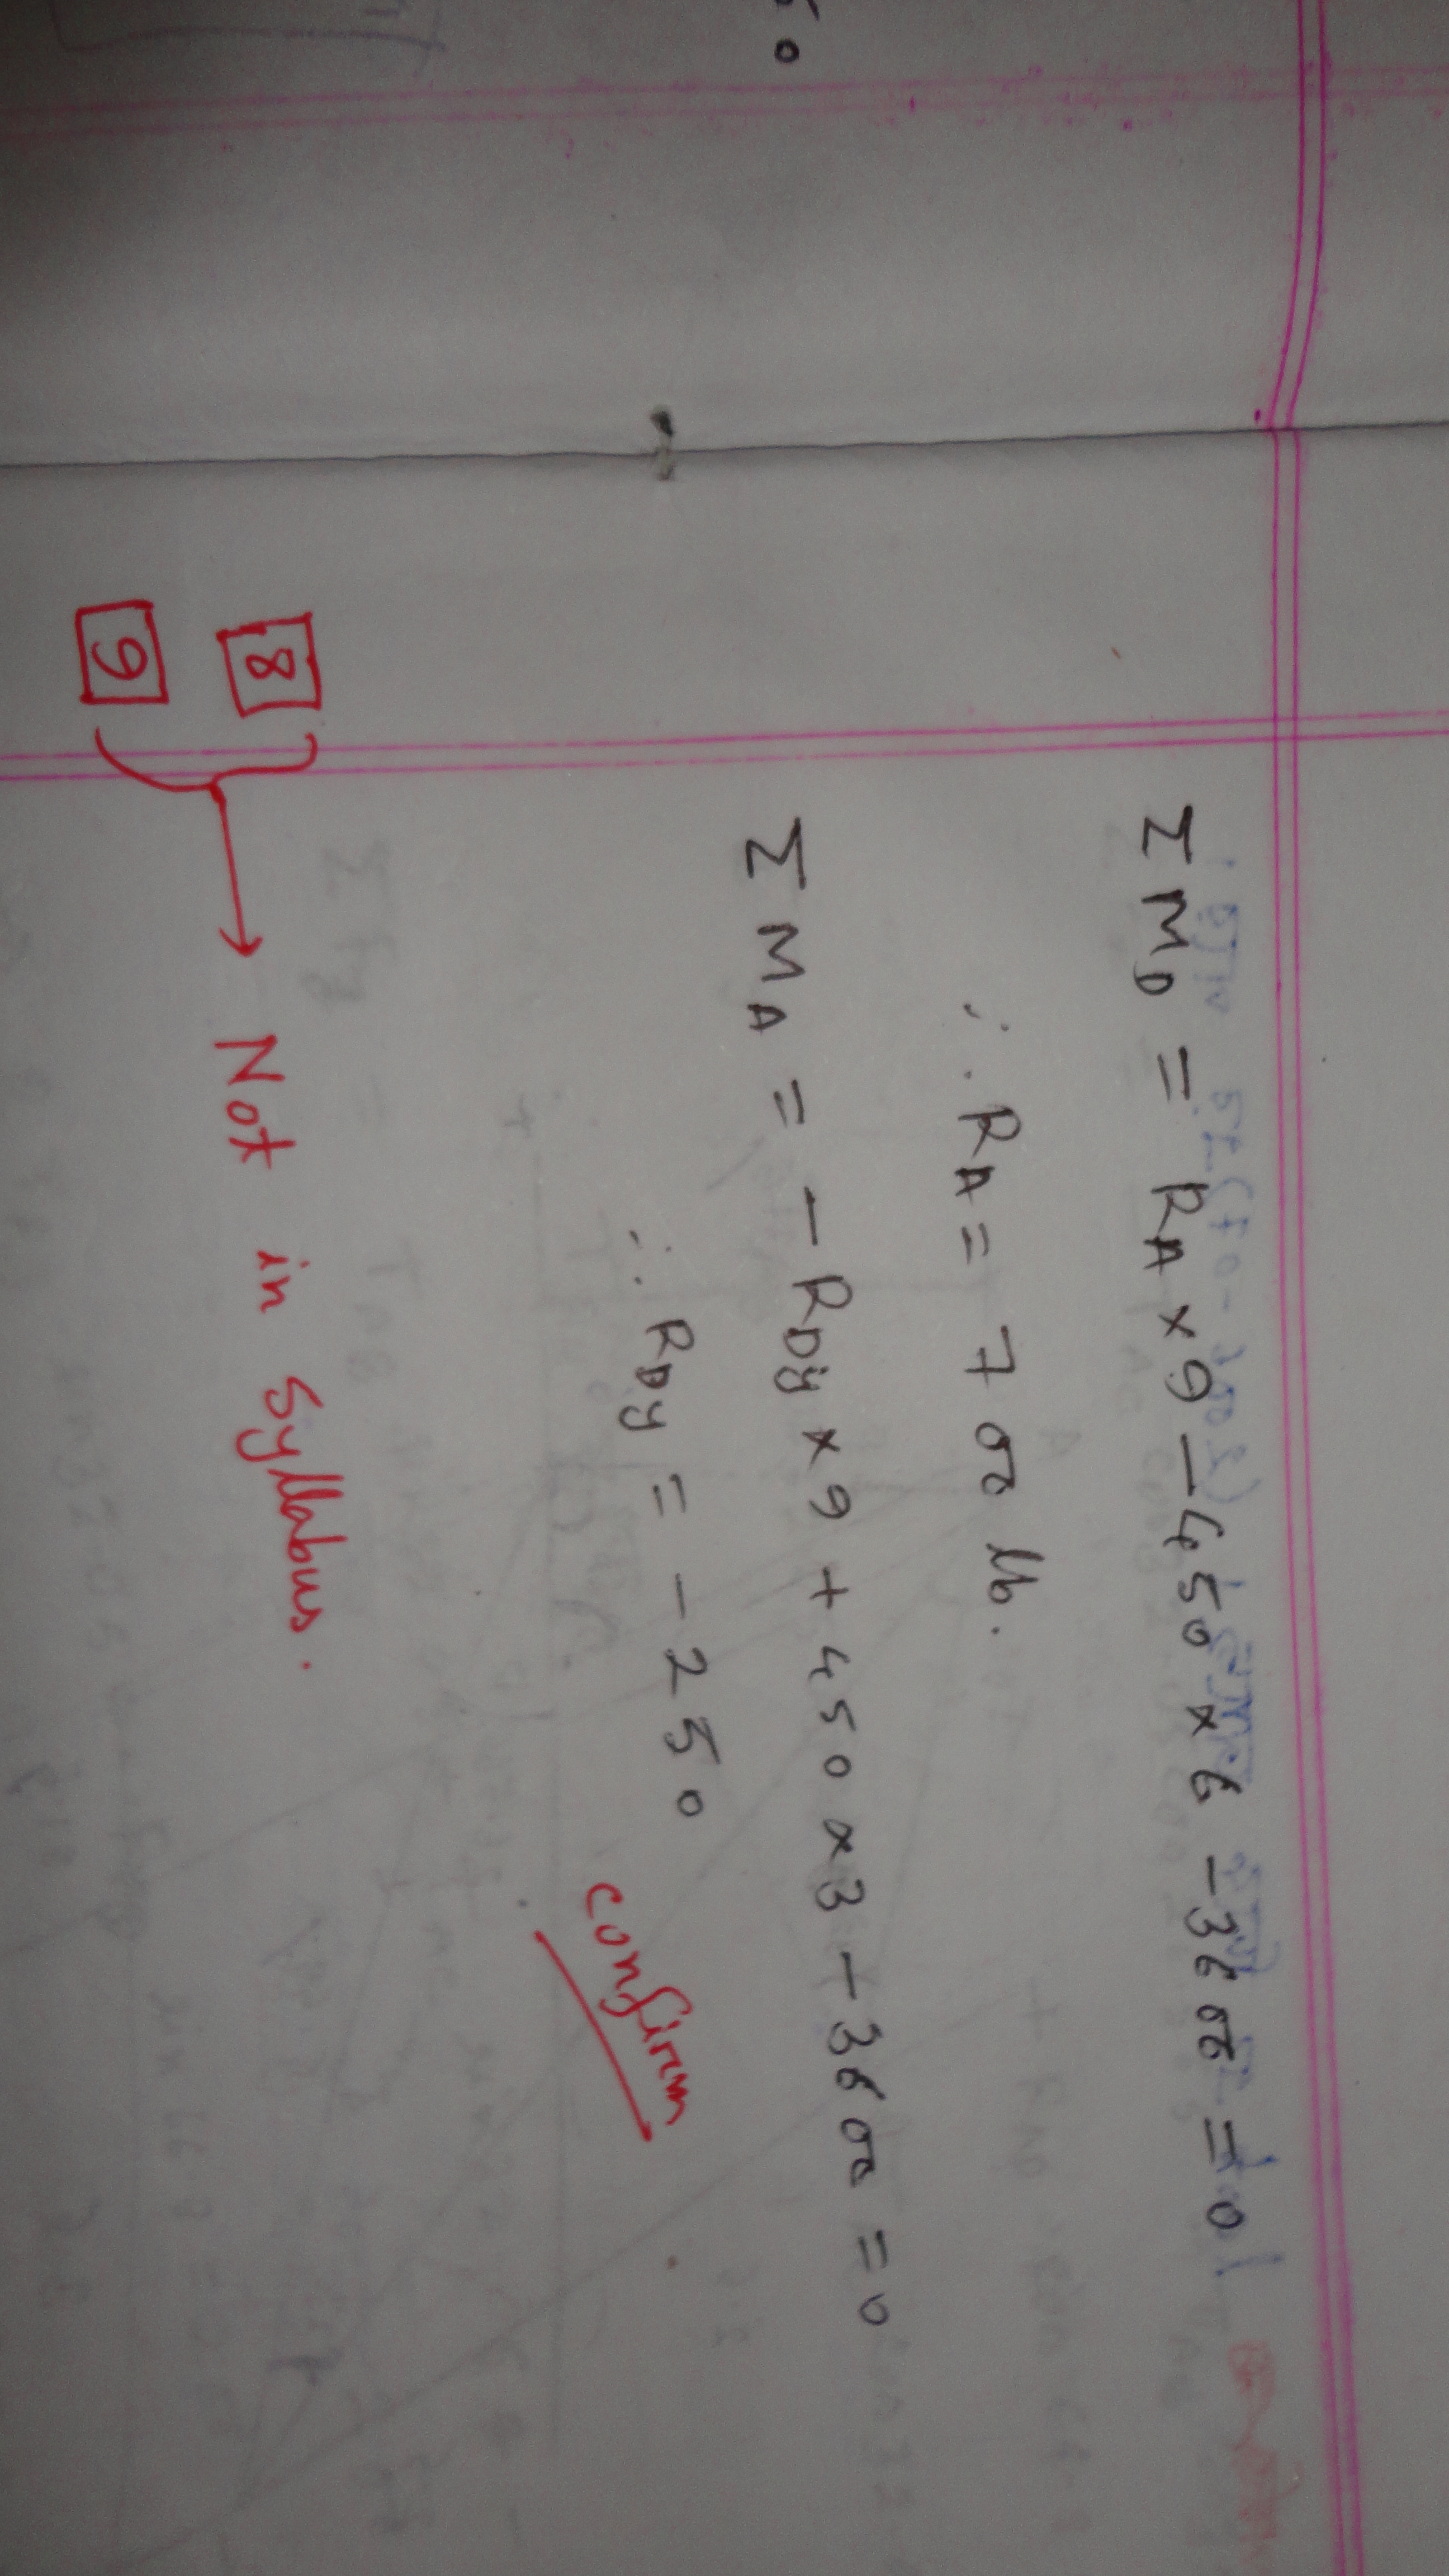 Σ M_D = R_A × 9 - 450 × 6 - 3600 = 0
∴ R_A = 700 lb.
Σ M_A = - R_Dy × 9 + 450 × 3 - 3600 = 0
∴ R_Dy = - 250
confirm
8
9
Not in Syllabus.